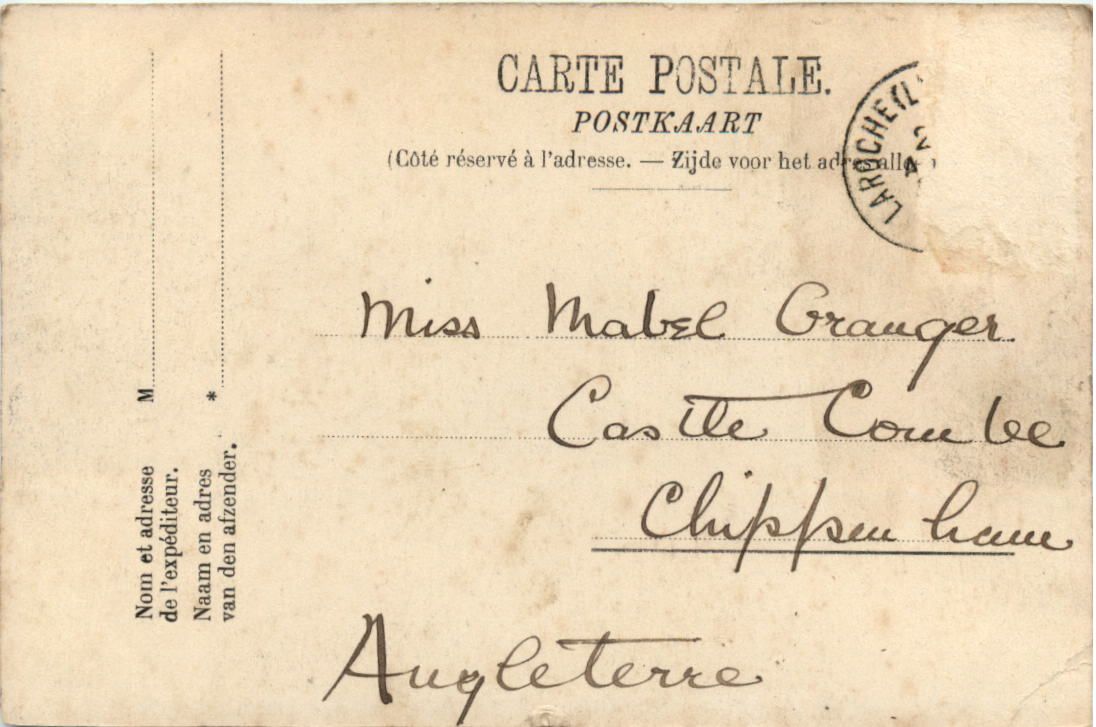 CARTE POSTALE.
POSTKAART
(Côté réservé à l'adresse. — Zijde voor het adres
LAROCHE (L
Miss Mabel Granger
Castle Combe
Chippenham
Angleterre
Nom et adresse M
de l'expéditeur.
Naam en adres *
van den afzender.